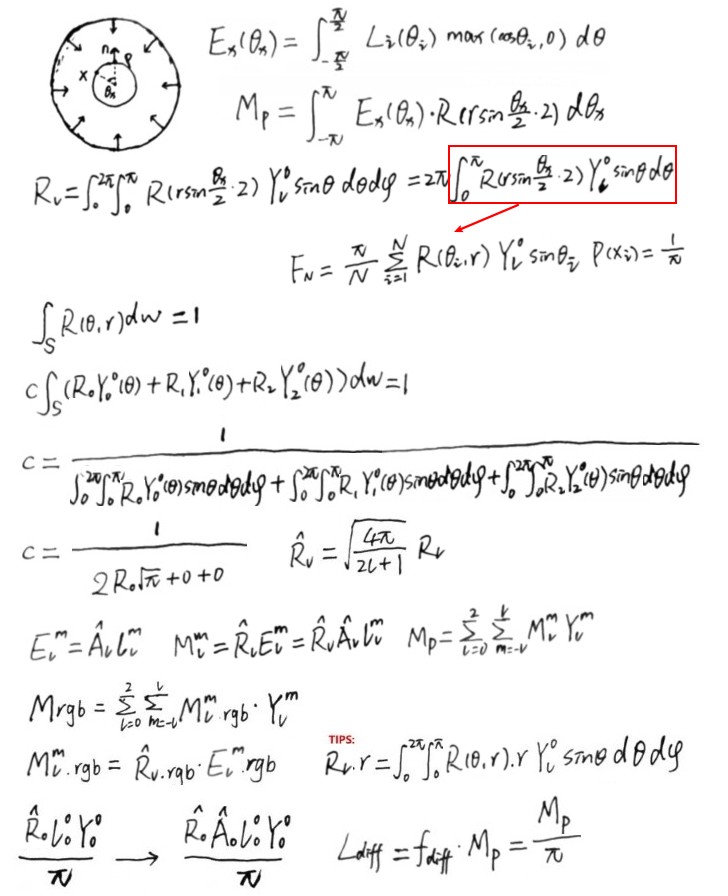 n P
x
θₓ
Eₓ(θₓ) = ∫_{-π/2}^{π/2} Lᵢ(θᵢ) max(cosθᵢ,0) dθ
M_p = ∫_{-π}^{π} Eₓ(θₓ)·R(rsin θₓ/2 ·2) dθₓ
R_l = ∫₀^{2π}∫₀^{π} R(rsin θₓ/2 ·2) Y_l^0 sinθ dθdφ = 2π ∫₀^{π} R(rsin θₓ/2 ·2) Y_l^0 sinθ dθ
F_N = π/N Σ_{i=1}^{N} R(θᵢ,r) Y_l^0 sinθᵢ P(xᵢ) = 1/π
∫_S R(θ,r)dw = 1
c∫_S (R₀Y₀^0(θ) + R₁Y₁^0(θ) + R₂Y₂^0(θ)))dw = 1
c = 1 / (∫₀^{2π}∫₀^{π} R₀Y₀^0(θ)sinθdθdφ + ∫₀^{2π}∫₀^{π} R₁Y₁^0(θ)sinθdθdφ + ∫₀^{2π}∫₀^{π} R₂Y₂^0(θ)sinθdθdφ)
c = 1 / (2R₀√π + 0 + 0) R̂_l = √(4π/(2l+1)) R_l
E_l^m = Â_l l_l^m M_l^m = R̂_l E_l^m = R̂_l Â_l l_l^m M_p = Σ_{l=0}^{2} Σ_{m=-l}^{l} M_l^m Y_l^m
Mrgb = Σ_{l=0}^{2} Σ_{m=-l}^{l} M_l^m.rgb · Y_l^m
TIPS:
M_l^m.rgb = R̂_l.rgb · E_l^m.rgb R_l.r = ∫₀^{2π}∫₀^{π} R(θ,r).r Y_l^0 sinθ dθdφ
R̂₀l₀^0Y₀^0 / π → R̂₀Â₀l₀^0Y₀^0 / π L_diff = f_diff · M_p = M_p / π